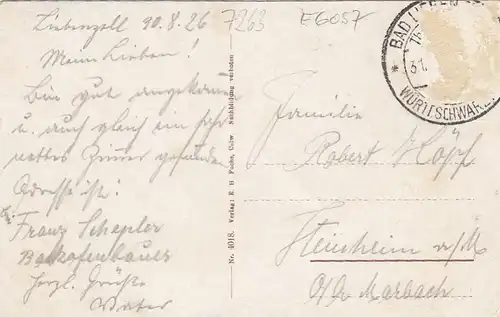 Liebenzell 30.8.26
7263
E6057
Meine Lieben!
Bin gut angekommen
u. auch gleich ein sehr
nettes Zimmer gefunden
Adresse ist:
Franz Schepler
Backofenbauer
Herzl. Grüße
Vater
Nr. 4018. Verlag: E. H. Fuchs, Calw Nachbildung verboten
BAD LIEBEN
31.
WÜRTT.SCHWAR
Familie
Robert Köpf
Steinheim a/M
O/A Marbach